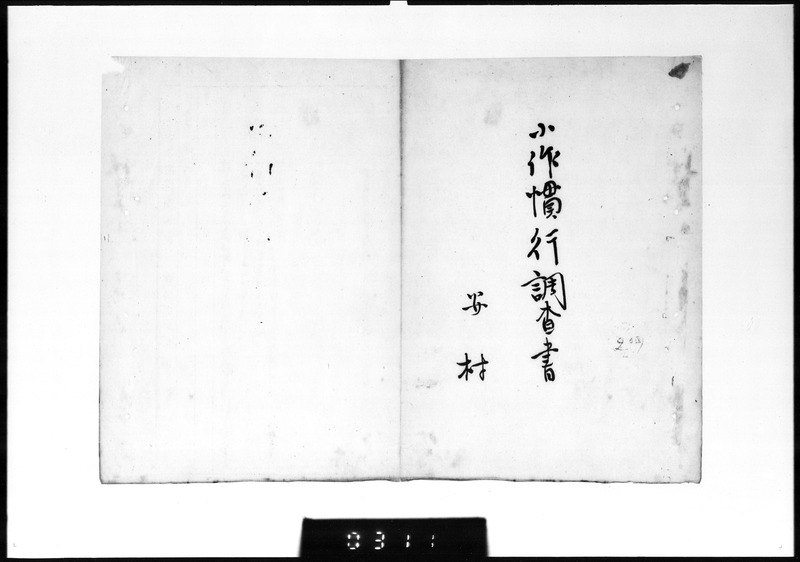 小作慣行調査書
安村
0311